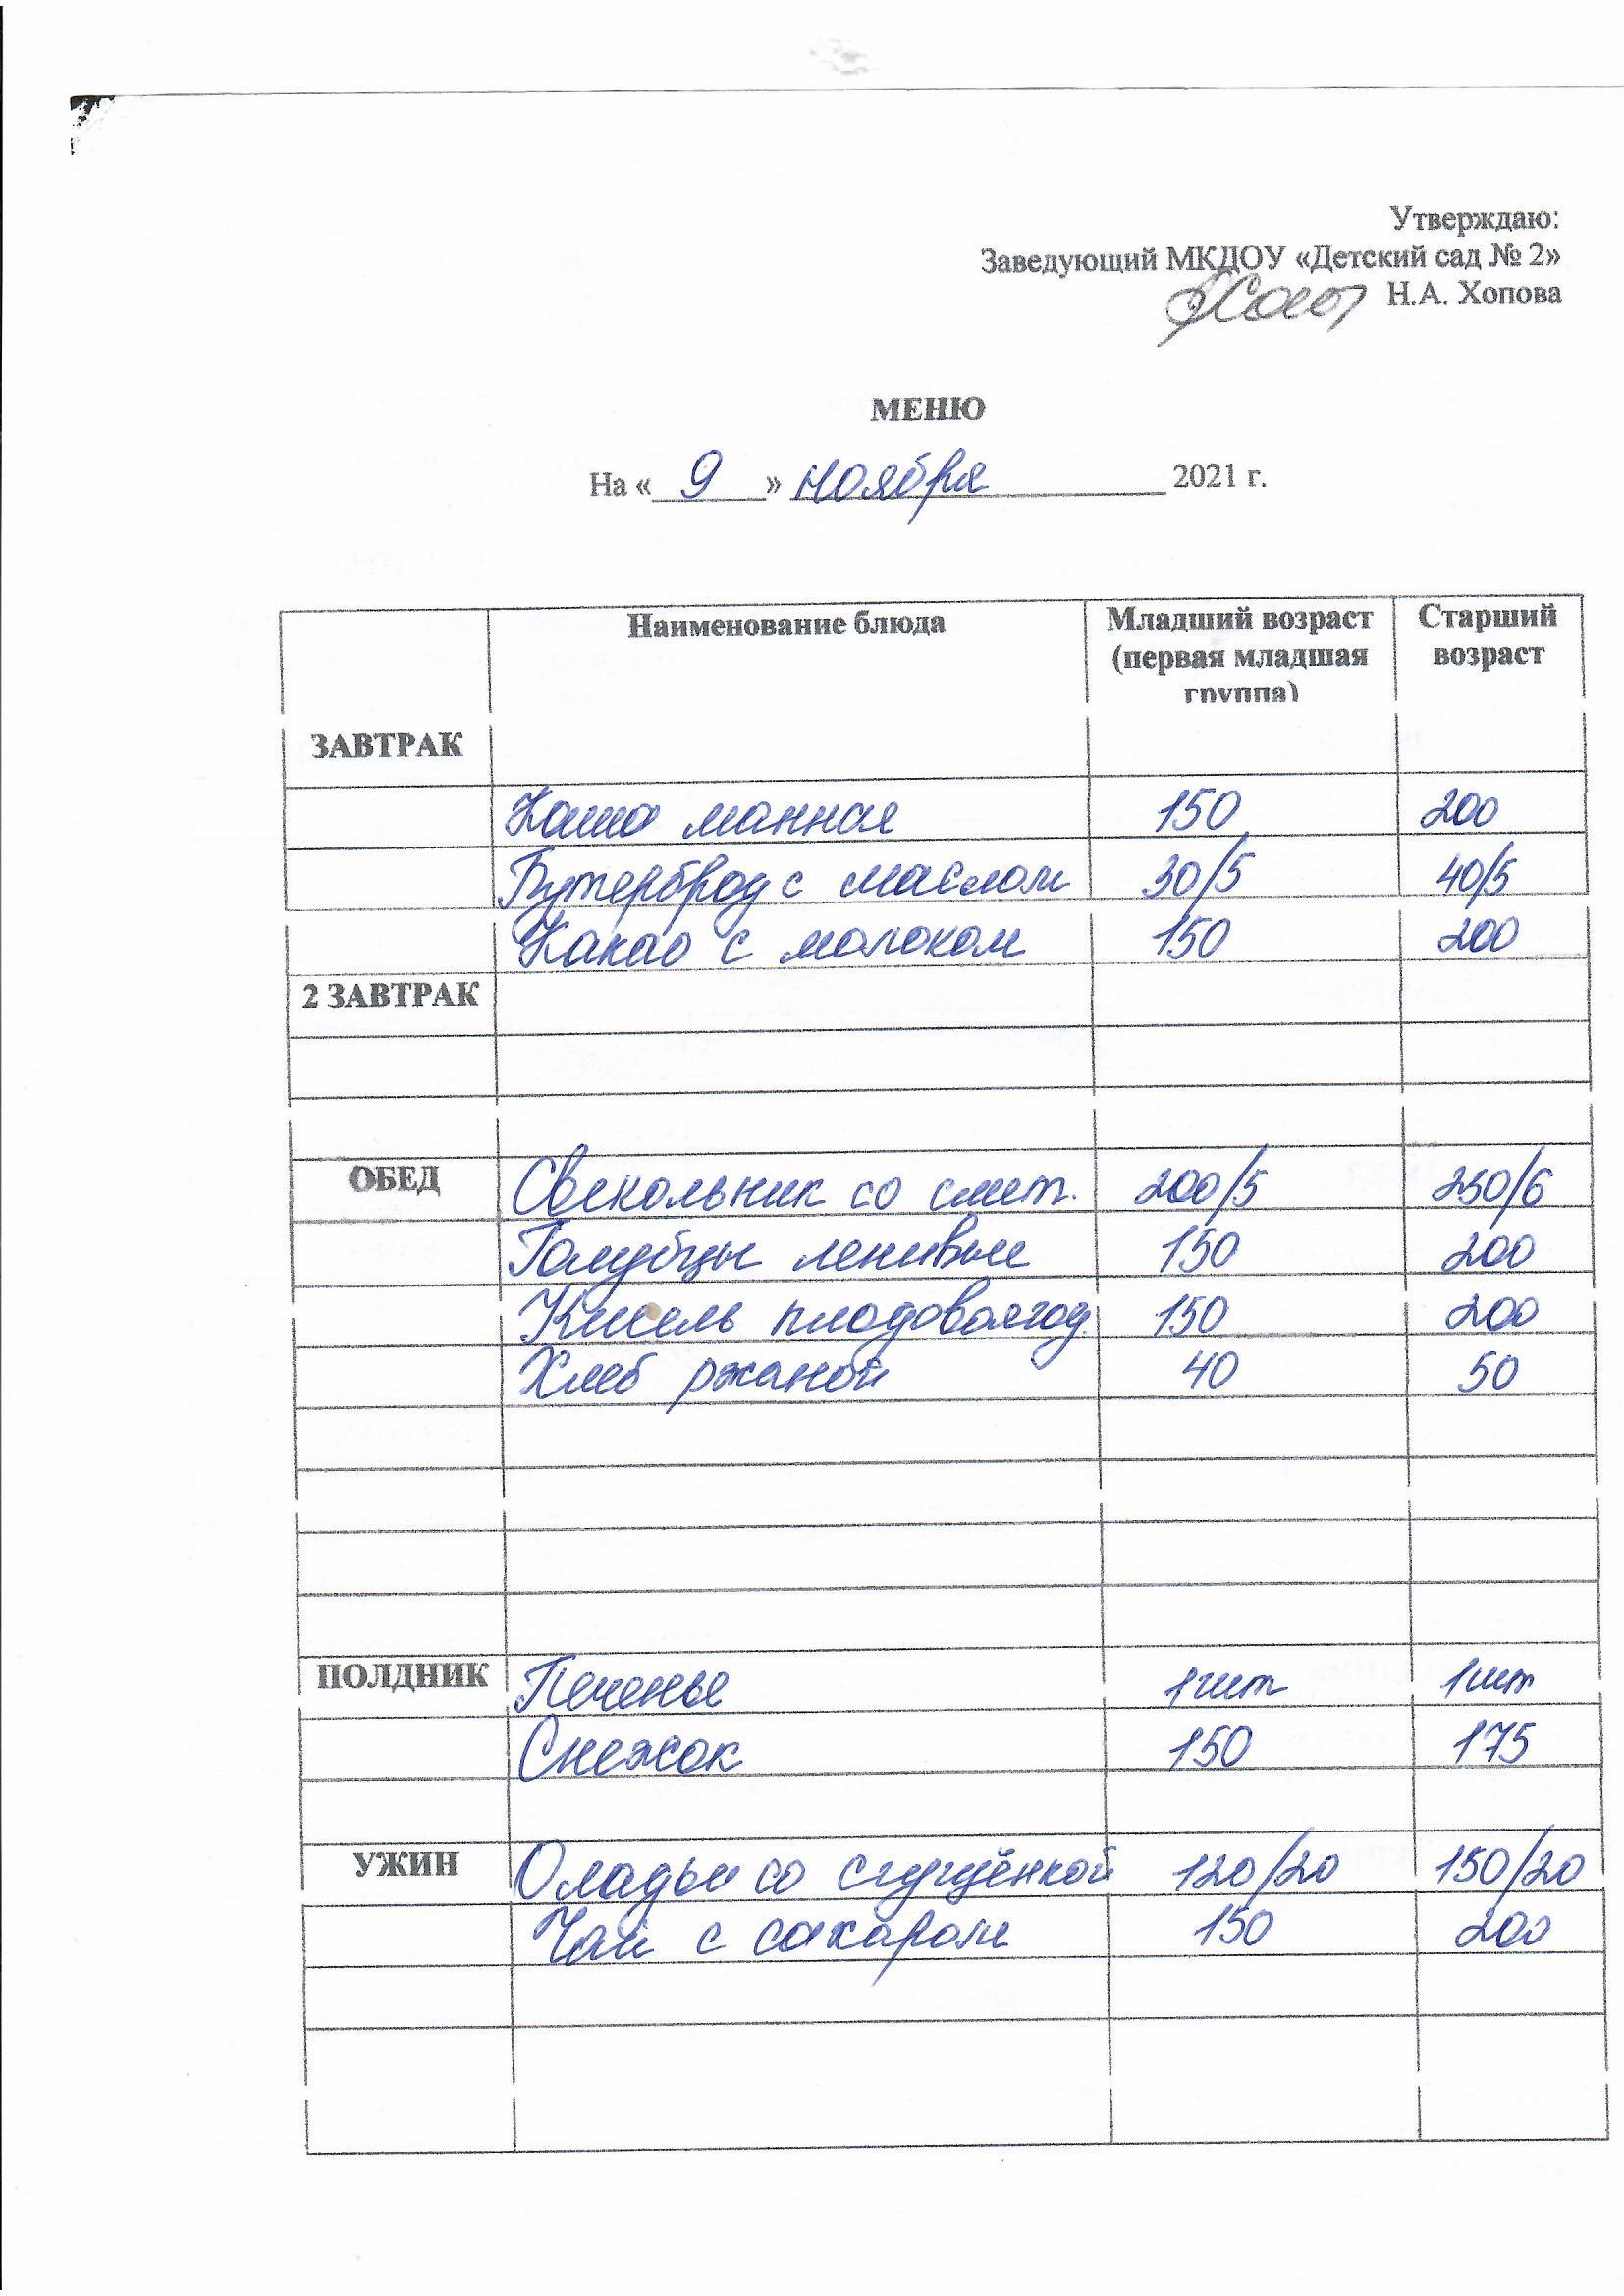 Утверждаю:
Заведующий МКДОУ «Детский сад № 2»
Н.А. Хопова
МЕНЮ
На « 9 » ноября 2021 г.
Наименование блюда Младший возраст (первая младшая группа) Старший возраст
ЗАВТРАК
Каша манная 150 200
Бутерброд с маслом 30/5 40/5
Какао с молоком 150 200
2 ЗАВТРАК
ОБЕД Свекольник со смет. 200/5 250/6
Голубцы ленивые 150 200
Кисель плодовоягод. 150 200
Хлеб ржаной 40 50
ПОЛДНИК Печенье 1шт 1шт
Снежок 150 175
УЖИН Оладьи со сгущёнкой 120/20 150/20
Чай с сахаром 150 200